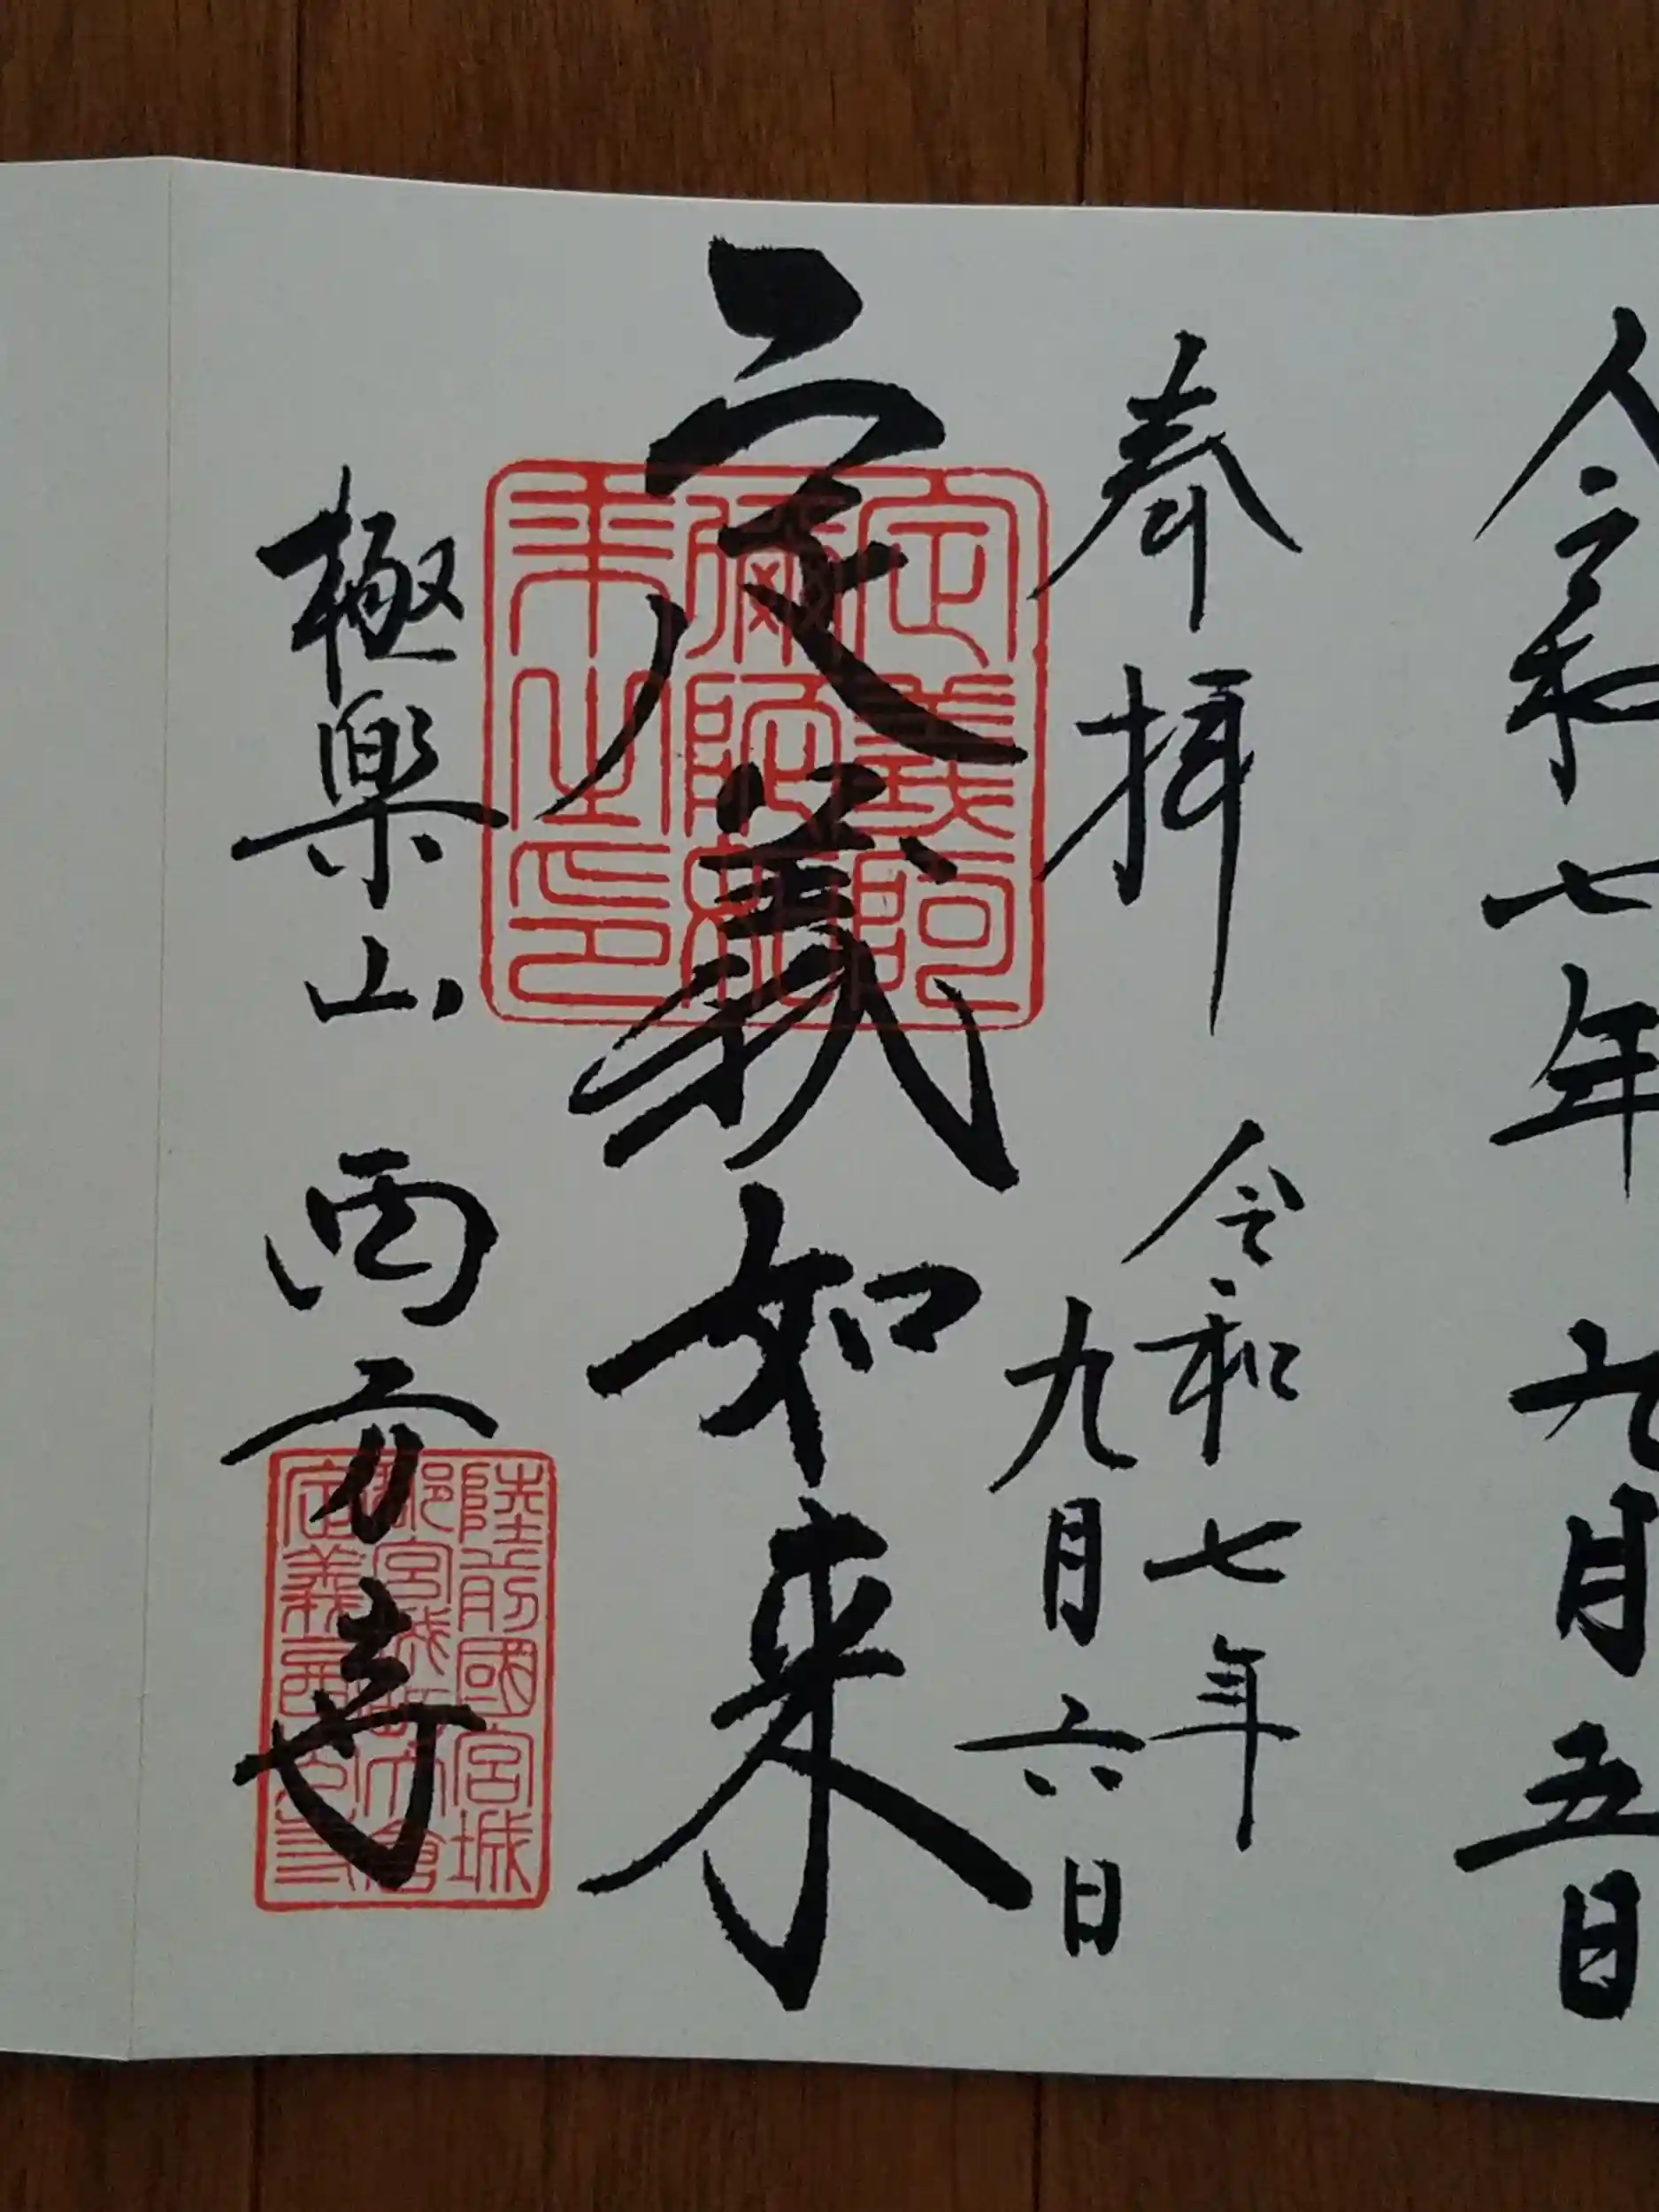 令和七年 六月五日
奉拝
令和七年
九月六日
定義如来
極楽山 西方寺
定義阿
彌陀如
来之印
陸前國宮城